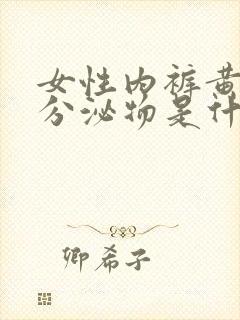 女性内裤黄
分泌物是什
卿希子